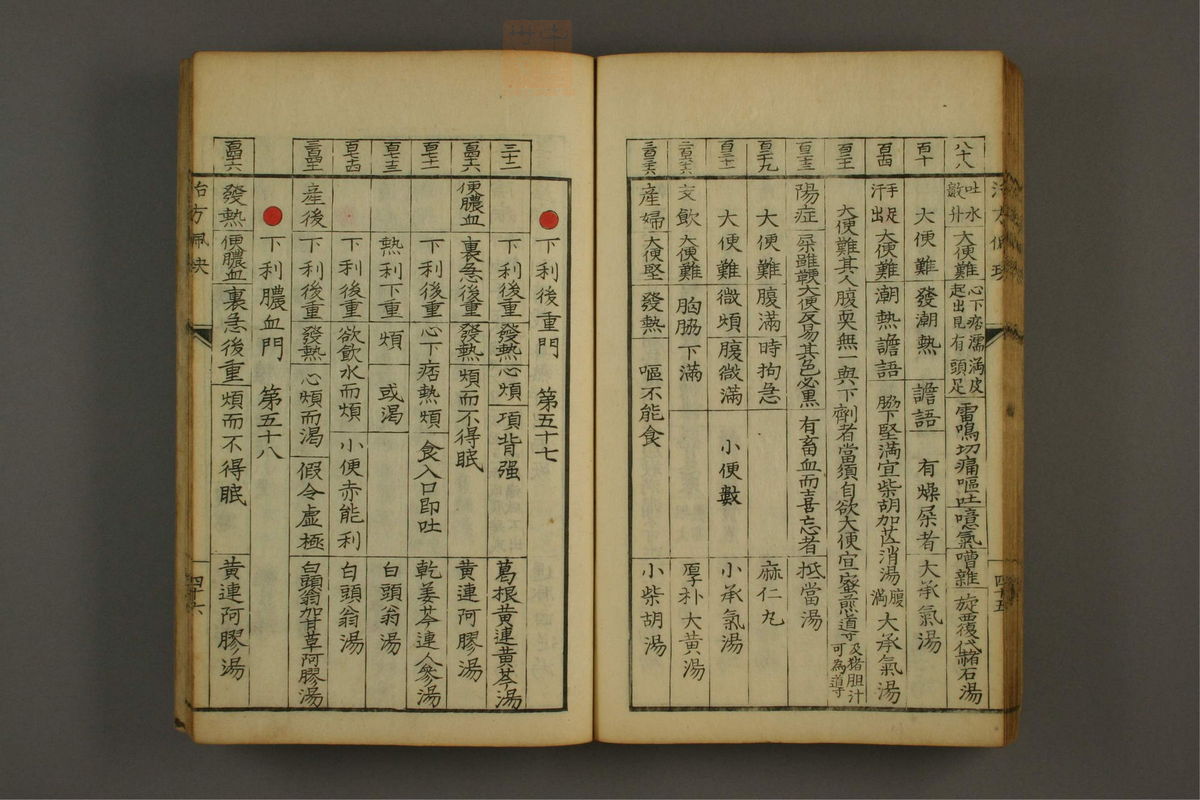 八十八 吐水数升 大便難 心下痞濡満皮起出見有頭足 雷鳴切痛嘔吐噫氣嘈雜 旋覆代赭石湯
百十 大便難 發潮熱 譫語 有燥屎者 大承氣湯
百四 手足汗出 大便難 潮熱譫語 脇下堅満宜柴胡加芒消湯 腹満 大承氣湯
大便難其人腹耎無一與下劑者當須自欲大便宜蜜煎導 及猪胆汁可為導
陽症 屎雖鞕大便反易其色必黒 有畜血而喜忘者 抵當湯
百三十九 大便難 腹満 時拘急 麻仁丸
大便難 微煩 腹微満 小便數 小承氣湯
支飲 大便難 胸脇下満 厚朴大黄湯
産婦 大便堅 發熱 嘔不能食 小柴胡湯
下利後重門 第五十七
三十二 下利後重 發熱 心煩 項背强 葛根黄連黄芩湯
便膿血 裏急後重 發熱 煩而不得眠 黄連阿膠湯
下利後重 心下痞熱煩 食入口即吐 乾姜芩連人參湯
熱利下重 煩 或渇 白頭翁湯
下利後重 欲飲水而煩 小便赤能利 白頭翁湯
産後 下利後重 發熱 心煩而渇 假令虚極 白頭翁加甘草阿膠湯
下利膿血門 第五十八
發熱 便膿血 裏急後重 煩而不得眠 黄連阿膠湯
四十五
四十六